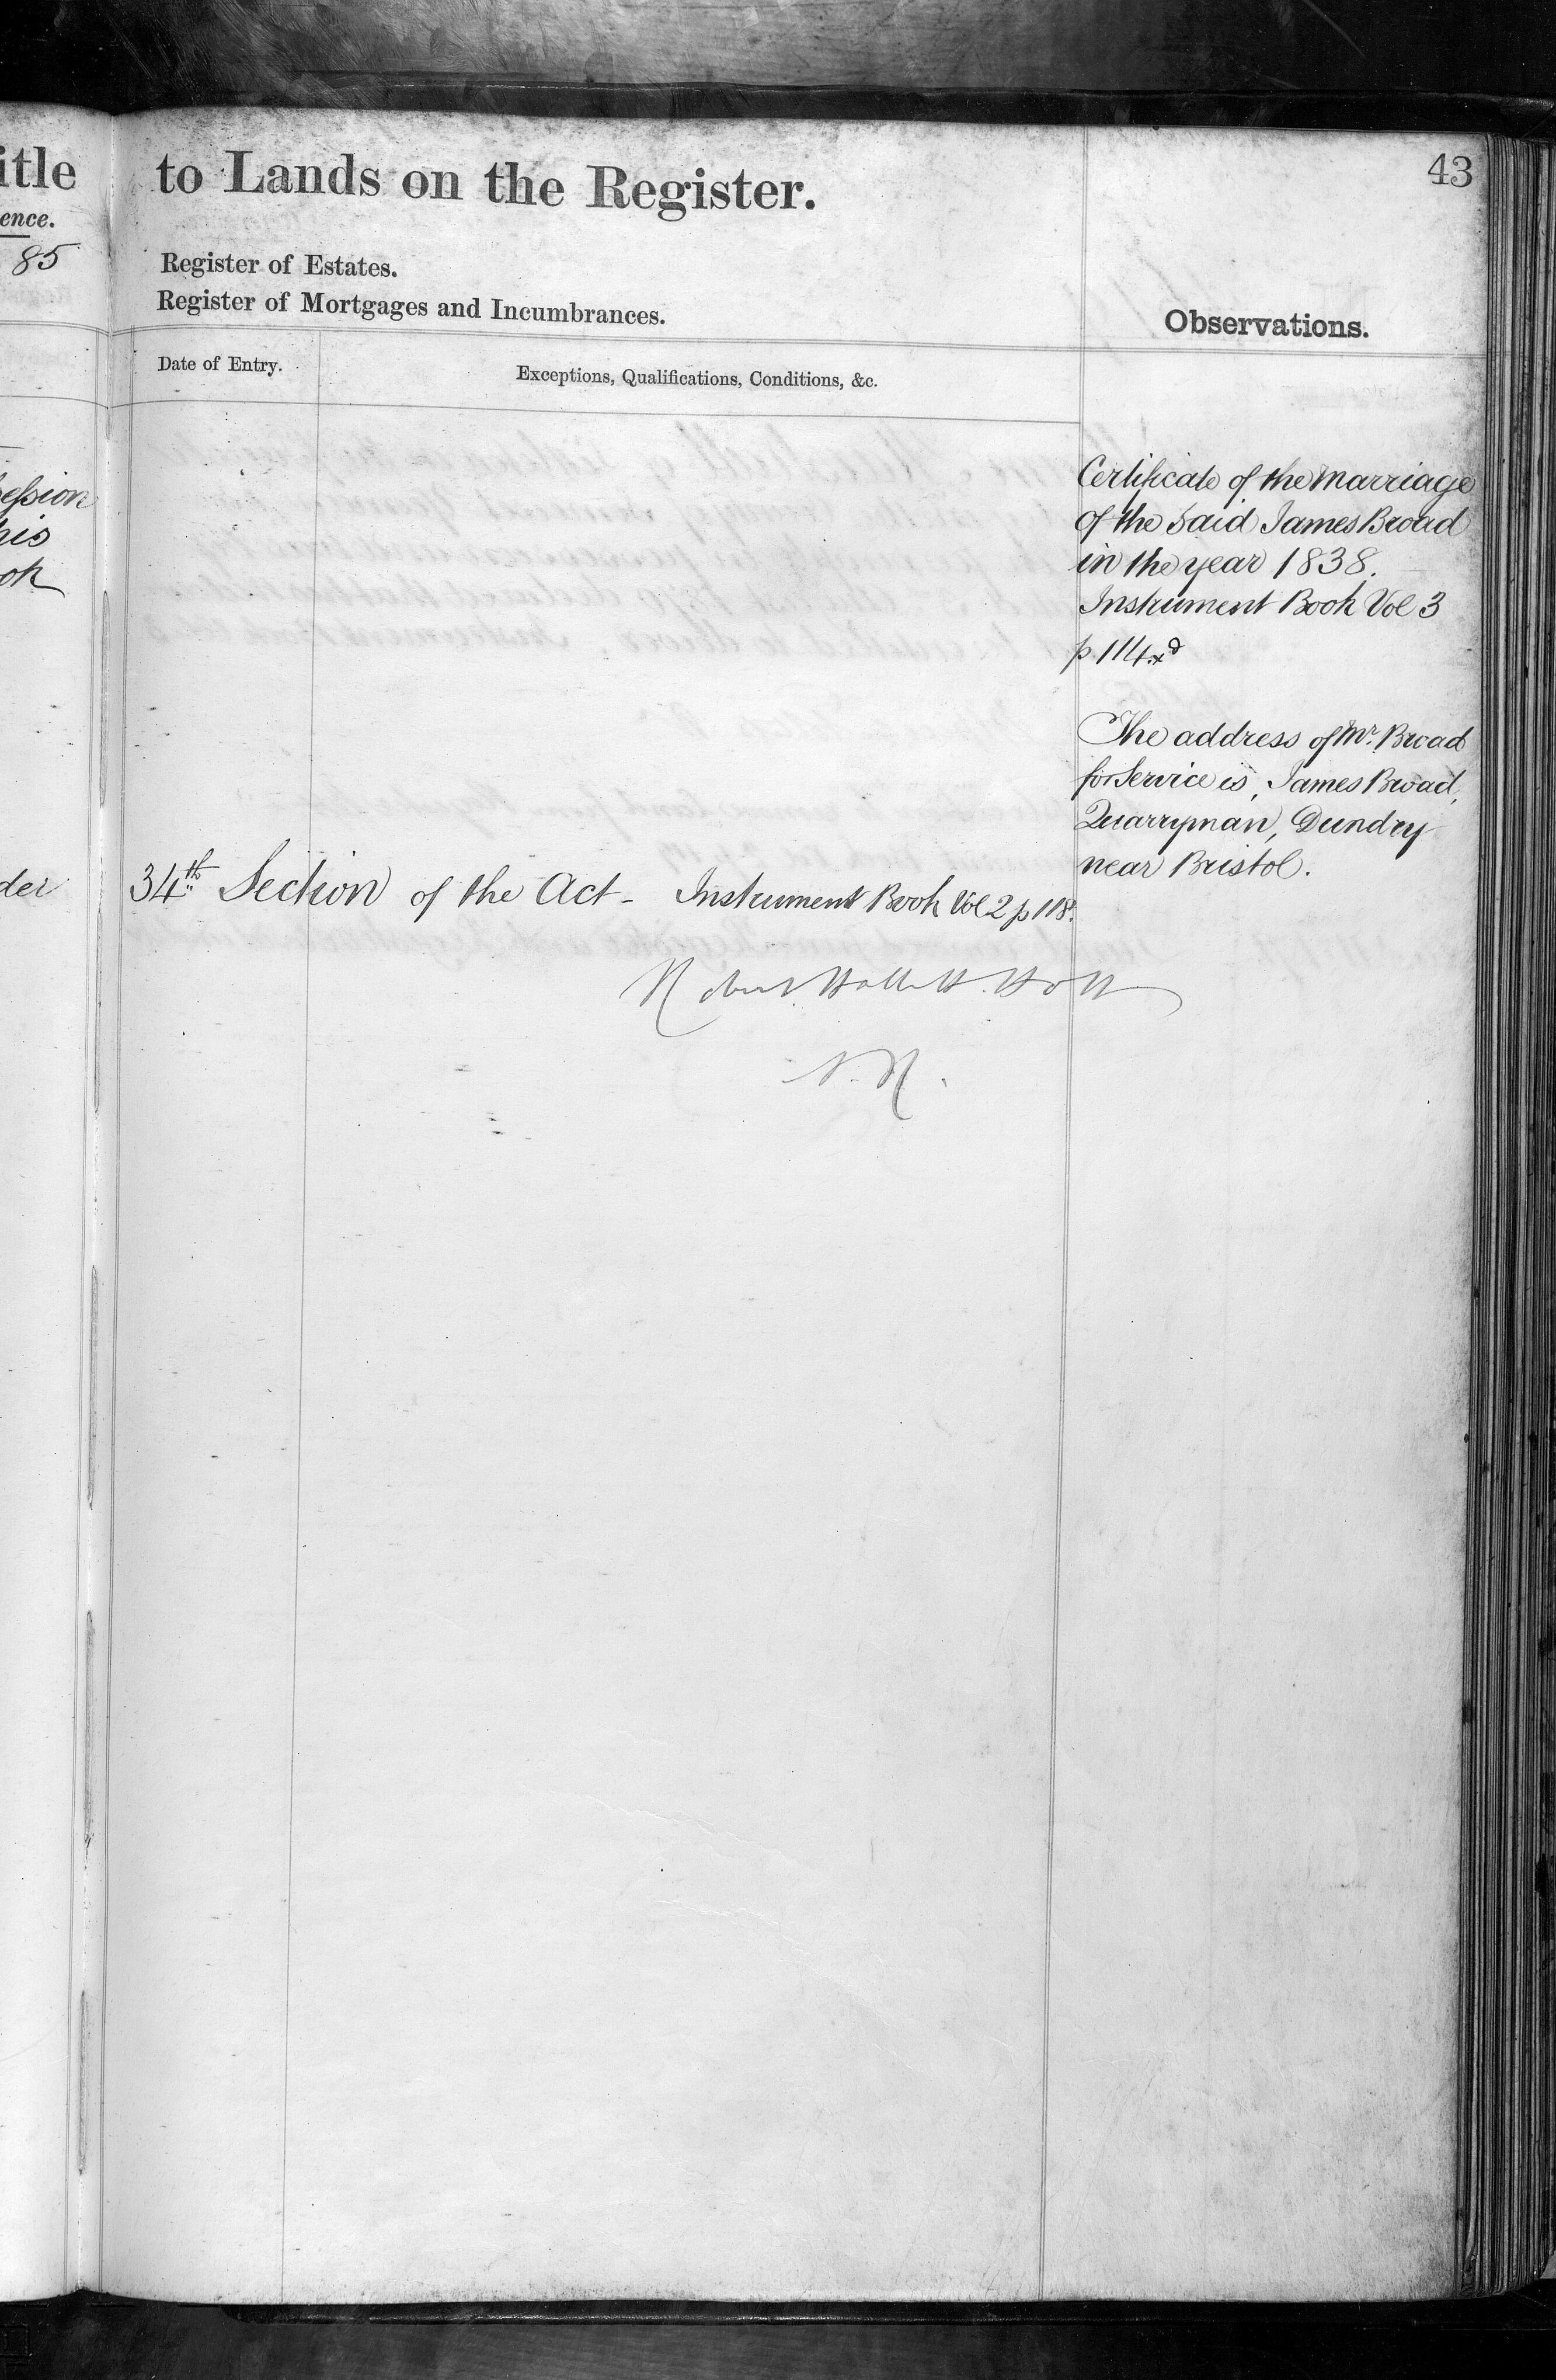 itle
ence.
85
to Lands on the Register.
43
Register of Estates.
Register of Mortgages and Incumbrances.
Observations.
Date of Entry.
Exceptions, Qualifications, Conditions, &c.
Certificate of the Marriage
of the said James Broad
in the year 1838.
Instrument Book Vol 3
p. 114
The address of Mr. Broad
for Service is, James Broad,
Quarryman, Dundry
near Bristol.
der
34th Section of the Act - Instrument Book Vol 2 p 118.
Robert Hallett Holt